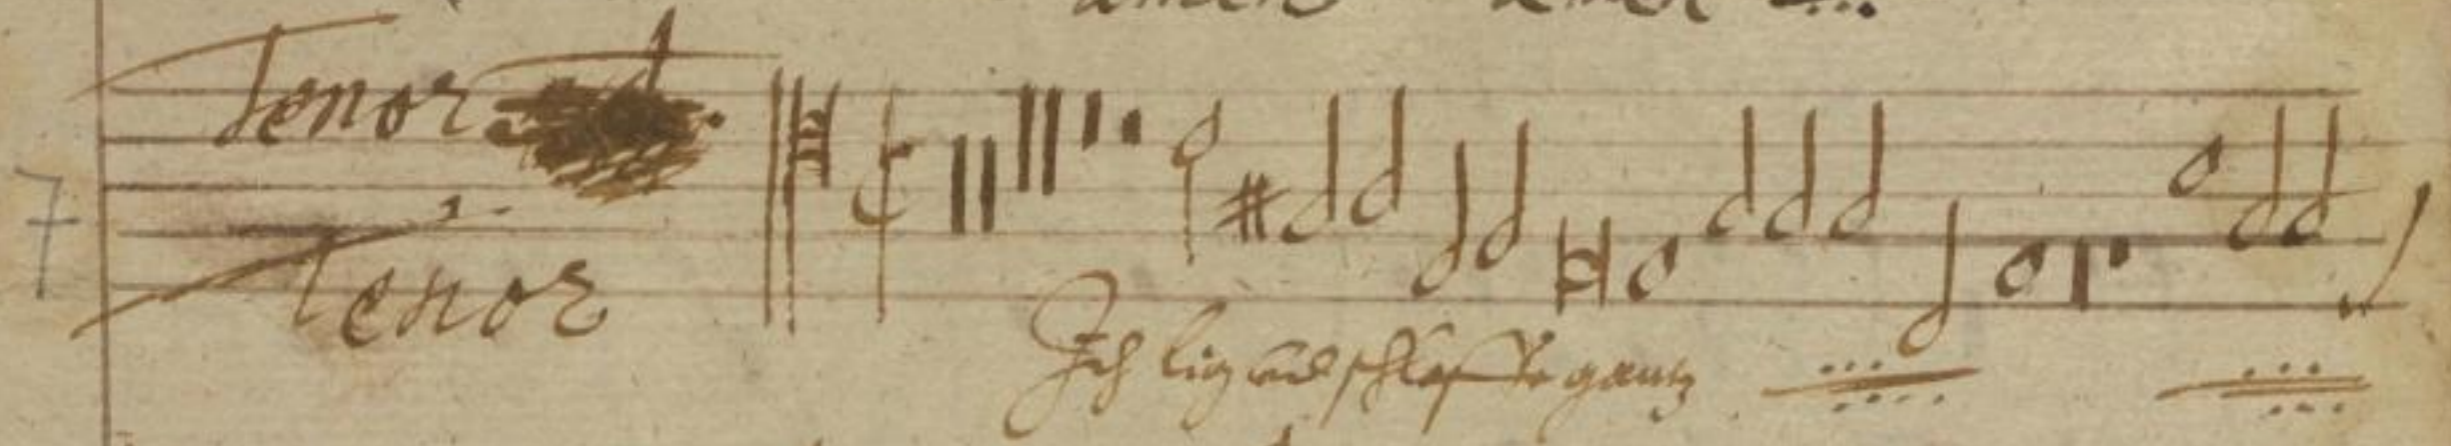 Tenor
7
Tenor
Ich lig und schlaffe gantz